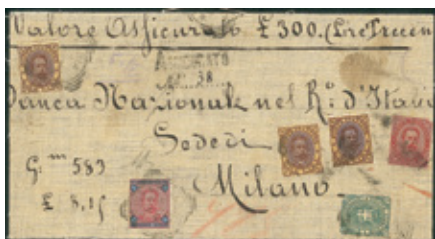 Valore Assicurato £ 300. (Lire Trecen
ASSICURATO
38
Banca Nazionale nel R.º d'Italia
Sede di
Milano.
G.ᵐᵐ 583
£ 8,15